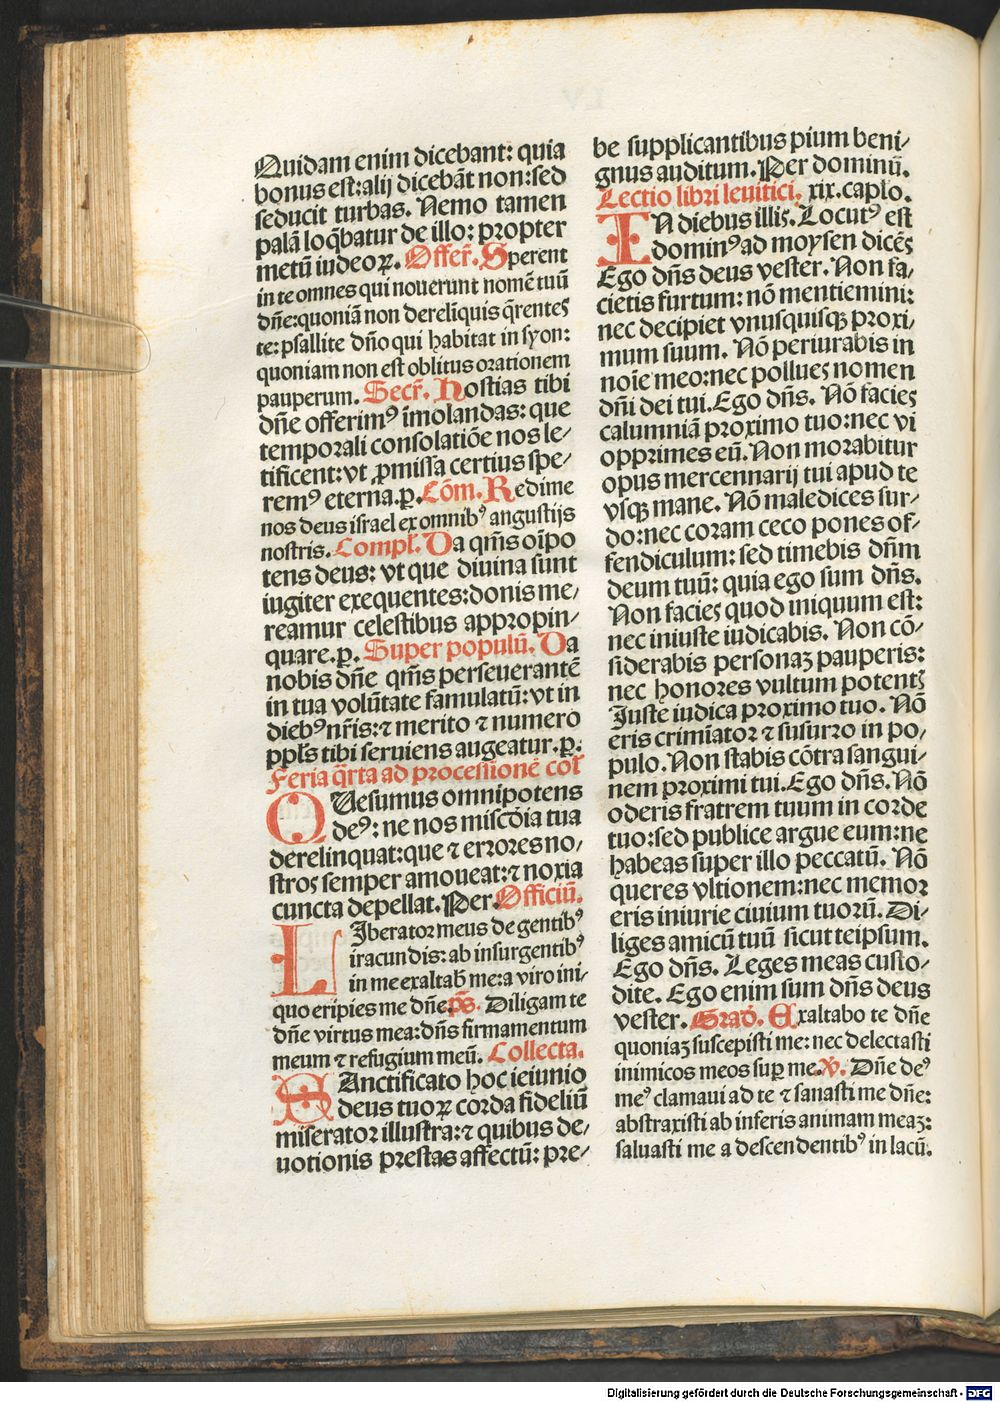 Quidam enim dicebant: quia
bonus est: alij dicebāt non: sed
seducit turbas. Nemo tamen
palā loq̄batur de illo: propter
metū iudeoꝝ. Offer̄. Sperent
in te omnes qui nouerunt nomē tuū
dn̄e: quoniā non derelīquis q̄rentes
te: psallite dn̄o qui habitat in syon:
quoniam non est oblitus orationem
pauperum. Secr̄. Hostias tibi
dn̄e offerimꝰ īmolandas: que
temporali consolatiōe nos le⸗
tificent: vt ꝓmissa certius spe⸗
remꝰ eterna. p̱. Cōm. Redime
nos deus israel ex omnibꝰ angustijs
nostris. Compl̄. Da qm̄s oīpo
tens deus: vt que diuina sunt
iugiter exequentes: donis me⸗
reamur celestibus appropin⸗
quare. p̱. Super populū. Da
nobis dn̄e qm̄s perseuerantē
in tua volūtate famulatū: vt in
diebꝰ nr̄is: ⁊ merito ⁊ numero
ppl̄s tibi seruiens augeatur. p̱.
Feria q̄rta ad processionē col̄
QUesumus omnipotens
deꝰ: ne nos miscd̄ia tua
derelinquat: que ⁊ errores no⸗
stros semper amoueat: ⁊ noxia
cuncta depellat. Per. Officiū.
LIberator meus de gentibꝰ
iracundis: ab insurgentibꝰ
in me exaltab̄ me: a viro ini⸗
quo eripies me dn̄e. p̄s. Diligam te
dn̄e virtus mea: dn̄s firmamentum
meum ⁊ refugium meū. Collecta.
SAnctificato hoc ieiunio
deus tuoꝝ corda fideliū
miserator illustra: ⁊ quibus de⸗
uotionis prestas affectū: pre⸗
be supplicantibus pium beni⸗
gnus auditum. Per dominū.
Lectio libri leuitici. xix. caplo.
IN diebus illis. Locutꝰ est
dominꝰ ad moysen dicēs
Ego dn̄s deus vester. Non fa⸗
cietis furtum: nō mentiemini:
nec decipiet vnusquisqꝫ proxi⸗
mum suum. Nō periurabis in
noīe meo: nec pollues nomen
dn̄i dei tui. Ego dn̄s. Nō facies
calumniā proximo tuo: nec vi
opprimes eū. Non morabitur
opus mercennarij tui apud te
vsqꝫ mane. Nō maledices sur⸗
do: nec coram ceco pones of⸗
fendiculum: sed timebis dn̄m
deum tuū: quia ego sum dn̄s.
Non facies quod iniquum est:
nec iniuste iudicabis. Non cō⸗
siderabis personaꝫ pauperis:
nec honores vultum potent̄
Iuste iudica proximo tuo. Nō
eris crimīator ⁊ susurro in po⸗
pulo. Non stabis cōtra sangui⸗
nem proximi tui. Ego dn̄s. Nō
oderis fratrem tuum in corde
tuo: sed publice argue eum: ne
habeas super illo peccatū. Nō
queres vltionem: nec memor
eris iniurie ciuium tuorū. Di⸗
liges amicū tuū sicut teipsum.
Ego dn̄s. Leges meas custo⸗
dite. Ego enim sum dn̄s deus
vester. Grad̄. Exaltabo te dn̄e
quoniaꝫ suscepisti me: nec delectasti
inimicos meos suꝑ me. ℣. Dn̄e deꝰ
meꝰ clamaui ad te ⁊ sanasti me dn̄e:
abstraxisti ab inferis animam meaꝫ:
saluasti me a descendentibꝰ in lacū.
Digitalisierung gefördert durch die Deutsche Forschungsgemeinschaft - DFG